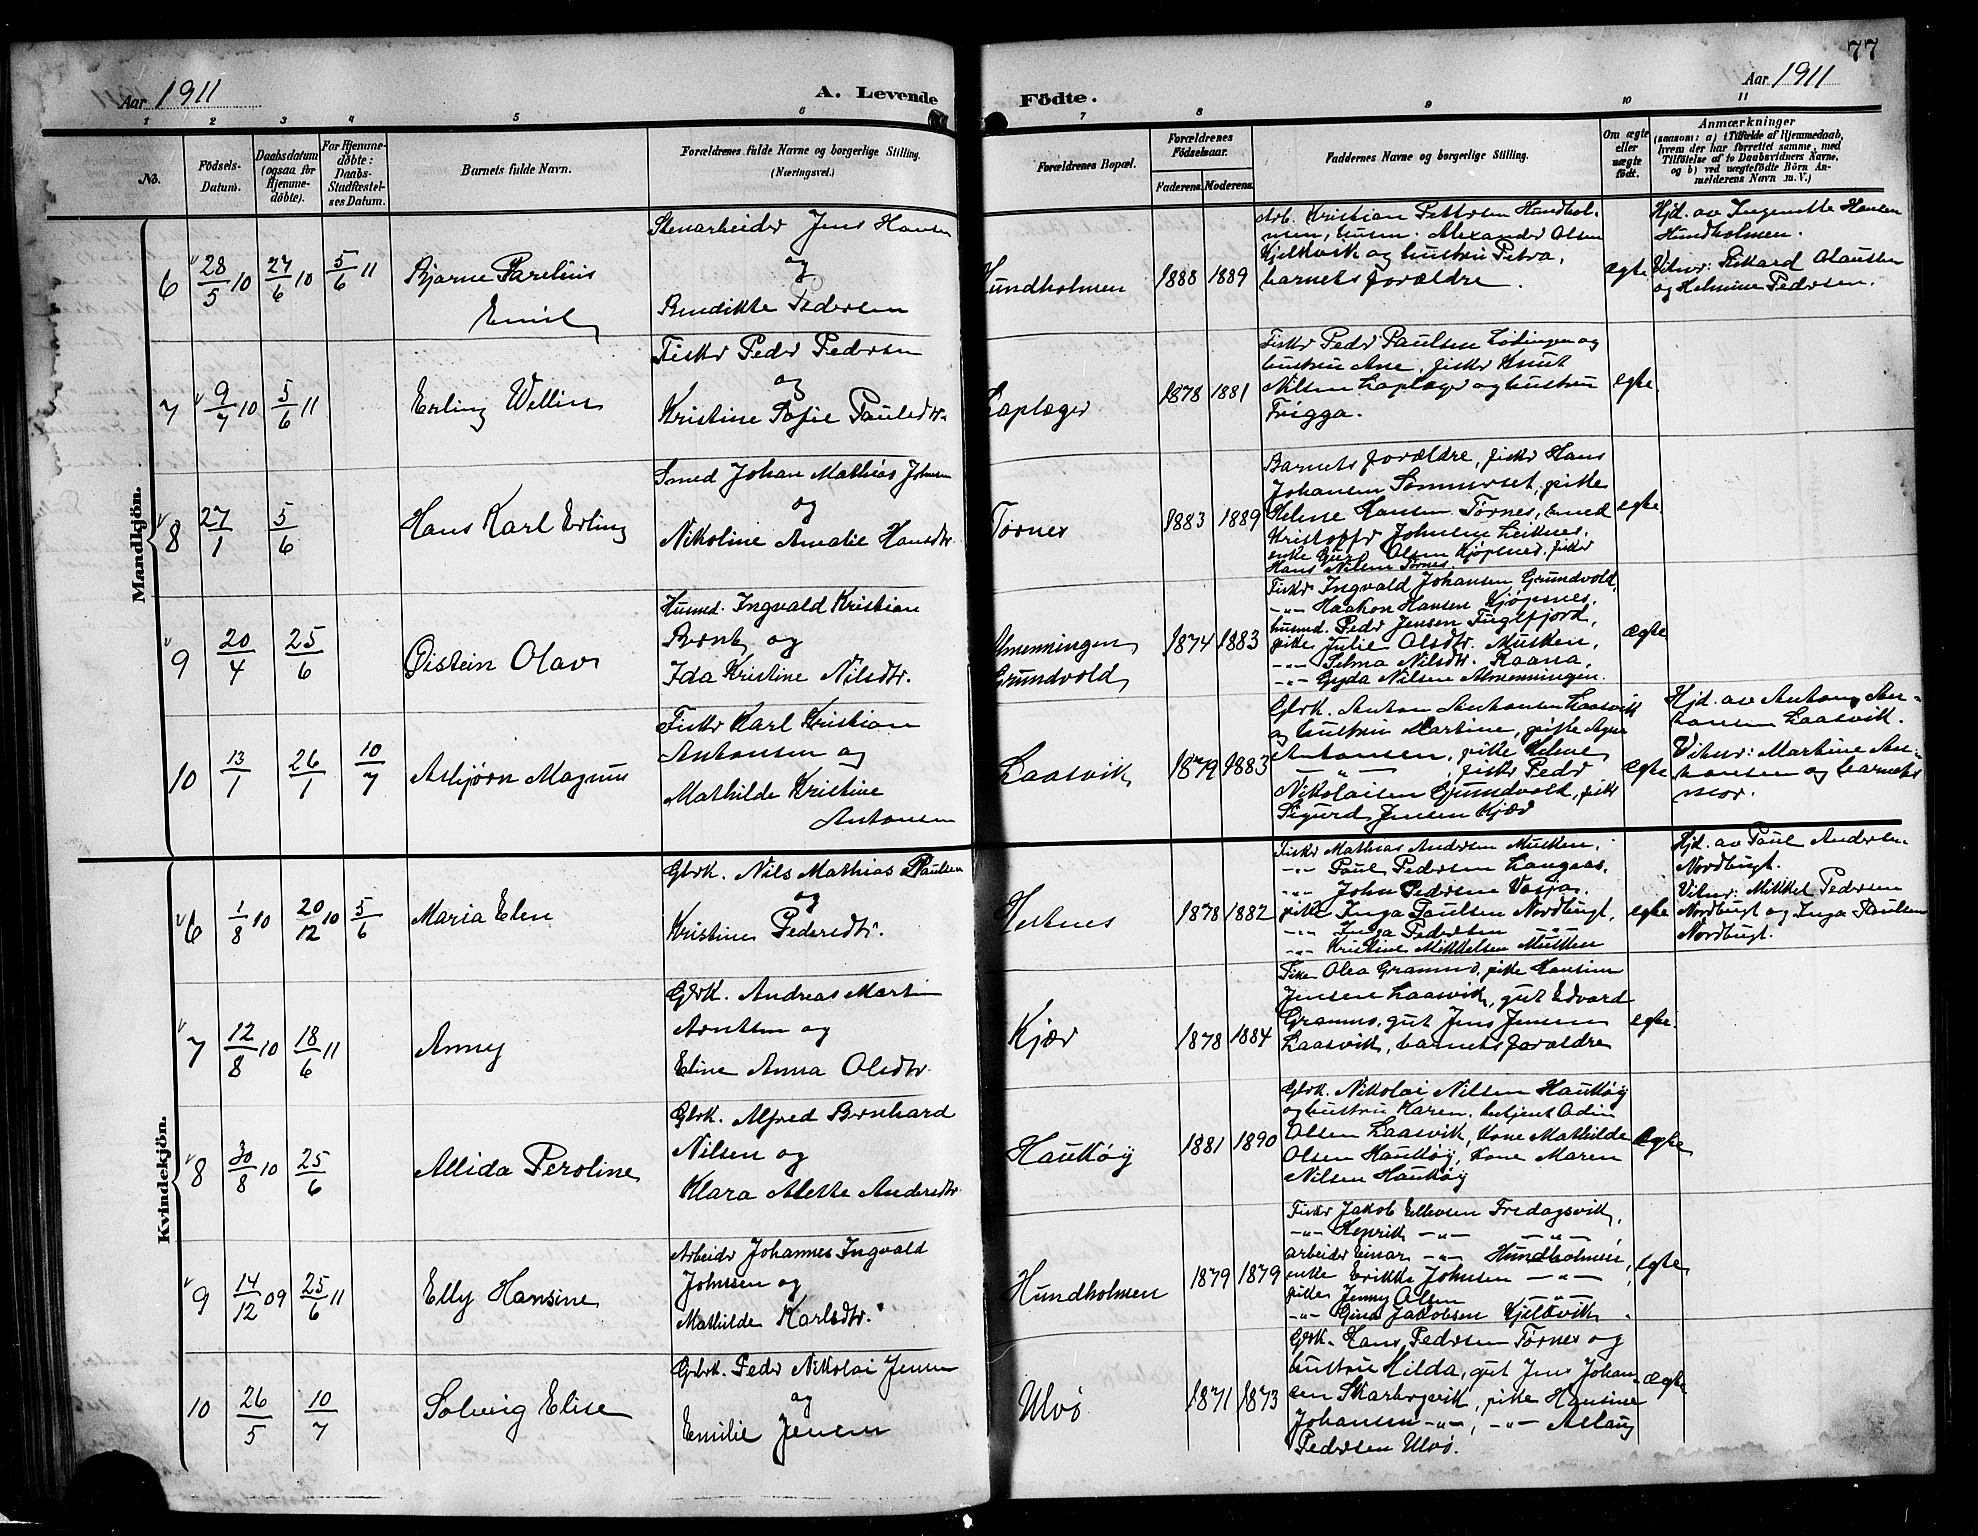 77
Aar 1911
A. Levende Födte.
Aar 1911
1 2 3 4 5 6 7 8 9 10 11
No.
Födsels-Datum.
Daabsdatum (ogsaa for Hjemme-döbte).
For Hjemme-döbte: Daabs-Stadfæstel-ses Datum.
Barnets fulde Navn.
Forældrenes fulde Navne og borgerlige Stilling. (Næringsvei.)
Forældrenes Bopæl.
Forældrenes Födselsaar.
Faderens. Moderens.
Faddernes Navne og borgerlige Stilling.
Om ægte eller uægte födt.
Anmærkninger
(saasom: a) i Tilfælde af Hjemmedaab,
hvem der har forrettet samme, med
Tilföielse af to Daabsvidners Navne,
og b) ved uægtefödte Börn An-
melderens Navn m. V.)
Mandkjön.
6 28/5 10 27/6 10 5/6 11
Bjarne Parelius
Emil
Stenarbeider Jens Hansen
og
Bendikte Pedersen
Hundholmen
1888 1889
Arb. Kristian Pettersen Hundhol-
men, husm. Alexander Olsen
Kjelkvik og hustru Petra,
barnets forældre.
ægte
Hjd. av Ingenette Hansen
Hundholmen.
Vitner: Rikard Olaussen
og Helmine Pedersen.
7 9/7 10 5/6 11
Erling Wellin
Fisker Peder Pedersen
og
Kristine Sofie Paulsdtr.
Laplæger
1878 1881
Fisker Peder Paulsen Lødingen og
hustru Ane, fisker Knut
Nilsen Laplæger og hustru
Frigga.
egte.
8 27/1 5/6
Hans Karl Erling
Smed Johan Mathias Johnsen
og
Nikoline Amalie Hansdtr.
Tørnes
1883 1889
Barnets forældre, fisker Hans
Johansen Sommerset, pike
Helene Hansen Tørnes, smed
Kristoffer Johnsen Leiknes,
enke Guro Olsen Kjøpsnes, fisker
Hans Nilsen Tørnes.
egte.
9 20/4 25/6
Øistein Olav
Husmd. Ingvald Kristian
Berntz og
Ida Kristine Nilsdtr.
Almenningen
Grundvold
1874 1883
Fisker Ingvald Johansen Grundvold,
-"- Haakon Hansen Kjøpsnes,
husmd. Peder Jensen Fuglfjord,
pike Julie Olsdtr. Musken,
-"- Selma Nilsdtr. Raana,
-"- Gyda Nilsen Almenningen.
ægte
10 13/1 26/1 10/7
Asbjørn Magnus
Fisker Karl Kristian
Antonsen og
Mathilde Kristine
Antonsen
Laasvik
1879 1883
Gbrk. Anton Antonsen Laasvik
og hustru Martine, pike Agne
Antonsen, pike Helene
-"- , fisker Peder
Nikolaisen Grundvold, fisker
Sigurd Jensen Kjær
egte
Hjd. av Anton An-
tonsen Laasvik.
Vitner: Martine An-
tonsen og barnets
mor.
Kvindekjön.
6 1/8 10 20/12 10 5/6
Maria Elen
Gbrk. Nils Mathias Paulsen
og
Kristine Pedersdtr.
Hestnes
1878 1882
Fisker Mathias Andersen Musken,
-"- Paul Pedersen Langaas,
-"- John Pedersen Vasja,
pike Inga Paulsen Nordbugt,
-"- Inga Pedersen -"-
-"- Kristine Mikkelsen Musken
egte
Hjd. av Paul Andersen
Nordbugt.
Vitner: Mikkel Pedersen
Nordbugt og Inga Paulsen
Nordbugt.
7 12/8 10 18/6 11
Anny
Gbrk. Andreas Martin
Arntsen og
Eline Anna Olsdtr.
Kjær
1878 1884
Pike Olea Gramno, pike Hansine
Jensen Laasvik, gut Edvard
Gramno, gut Jens Jensen
Laasvik, barnets forældre
egte.
8 30/8 10 25/6
Allida Peroline
Gbrk. Alfred Bernhard
Nilsen og
Klara Alette Andersdtr.
Haukøy
1881 1890
Gbrk. Nikolai Nilsen Haukøy
og hustru Karen, betjent Odin
Olsen Laasvik, kone Mathilde
Olsen Haukøy, kone Maren
Nilsen Haukøy
egte
9 14/12 09 25/6 11
Elly Hansine
Arbeider Johannes Ingvald
Johnsen og
Mathilde Karlsdtr.
Hundholmen
1879 1879
Fisker Jakob Ellevsen Fredagsvik,
-"- Henrik -"- -"-
arbeider Einar -"- Hundholmen,
enke Erikke Johnsen -"-
pike Jenny Olsen -"-
-"- Gina Jakobsen Kjelkvik.
egte
10 26/5 10/7
Solveig Elise
Gbrk. Peder Nikolai Jensen
og
Emilie Jensen
Ulvø
1871 1873
Gbrk. Hans Pedersen Tørnes og
hustru Hilda, gut Jens Johan-
sen Skarbergvik, pike Hansine
Johansen -"-, -"- Aslaug
Pedersen Ulvø.
ægte